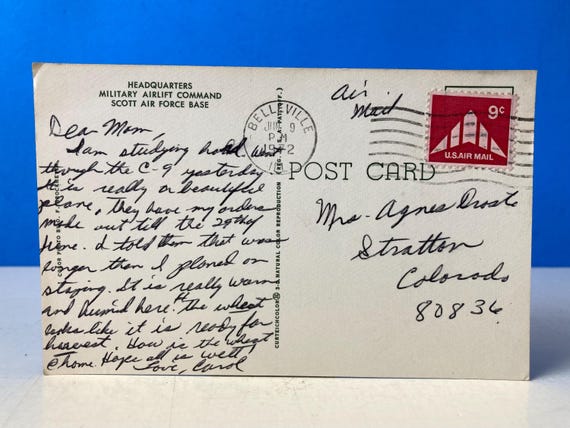 HEADQUARTERS
MILITARY AIRLIFT COMMAND
SCOTT AIR FORCE BASE
Dear Mom,
I am studying hard went
though the C-9 yesterday
it is really a beautiful
plane, they have my orders
made out till the 29th of
June. I told them that was
longer than I planed on
staying. It is really warm
and humid here. The wheat
looks like it is ready for
harvest. How is the wheat
@ home. Hope all is well
Love, Carol
CURTEICHCOLOR® 3-D NATURAL COLOR REPRODUCTION (REG. U.S.A. PAT. OFF.)
BELLEVILLE
JUN 9
PM
1972
Air
Mail
9c
U.S. AIR MAIL
POST CARD
Mrs. Agnes Droste
Stratton
Colorado
80836